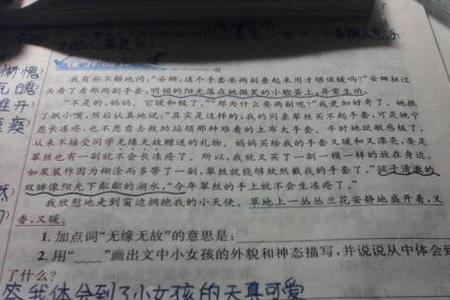 我有些不解地问:"安娜,这个手套要两副叠起来用才够保暖吗?"安娜扭过
头看了看那两副手套,明媚的阳光落在她微笑的小脸蛋上,异常生动。
"不是的,妈妈,它暖和极了。""那为什么要两副呢?"我更加好奇了。她抿
了抿小嘴,然后认真地说:"其实是这样的,我的同桌翠丝买不起手套,可是她宁
愿长冻疮,也不愿意去救助站领那种难看的土布大手套。平时她就敏感极了,
从来不接受同学无缘无故赠送的礼物。妈妈买给我的手套又暖和又漂亮,要是
翠丝也有一副就不会长冻疮了。所以,我就又买了一副一模一样的放在身边。
如果装作因为糊涂而多带了一副,翠丝就能够欣然戴我的手套了。"孩子清澈的
双眸像阳光下粼粼的湖水,"今年翠丝的手上就不会生冻疮了。"
我欣慰地走到窗边拥抱我的小天使,草地上一丛丛兰花安静地盛开着,又
香,又暖。
1.加点词"无缘无故"的意思是:
2.用" "画出文中小女孩的外貌和神态描写,并说说从中体会到
了什么?
答我体会到了小女孩的天真可爱